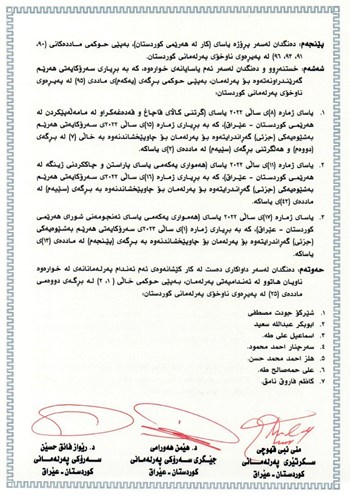 پێنجەم: دەنگدان لەسەر پرۆژە یاسای (کار لە هەرێمی کوردستان)، بەپێی حوکمی ماددەکانی (٩٠،
٩١، ٩٣، ٩٦) لە پەیرەوی ناوخۆی پەرلەمانی کوردستان.
شەشەم: خستنەڕوو و دەنگدان لەسەر ئەم یاسایانەی خوارەوە، کە بە بڕیاری سەرۆکایەتی هەرێم
گەڕێندراونەتەوە بۆ پەرلەمان، بەپێی حوکمی بڕگەی (یەکەم)ی ماددەی (٩٥) لە پەیرەوی
ناوخۆی پەرلەمانی کوردستان:
١. یاسای ژمارە (٨)ی ساڵی ٢٠٢٢ یاسای (گرتنی کاڵای قاچاغ و قەدەغەکراو لە مامەڵەپێکردن لە
هەرێمی کوردستان - عێراق)، کە بە بڕیاری ژمارە (١٥)ی ساڵی ٢٠٢٢ی سەرۆکایەتی هەرێم
بەشێوەیەکی (جزئی) گەڕاندرایەتەوە بۆ پەرلەمان بۆ جاوپێخشاندنەوە بە خاڵی (٧) لە بڕگەی
(دووەم) و هەڵگرتنی بڕگەی (سێیەم) لە ماددەی (٣)ی یاساکە.
٢. یاسای ژمارە (١١)ی ساڵی ٢٠٢٢ یاسای (هەمواری یەکەمی یاسای پاراستن و چاککردنی ژینگە لە
هەرێمی کوردستان - عێراق)، کە بە بڕیاری ژمارە (١٦)ی ساڵی ٢٠٢٢ی سەرۆکایەتی هەرێم
بەشێوەیەکی (جزئی) گەڕاندرایەتەوە بۆ پەرلەمان بۆ جاوپێخشاندنەوە بە بڕگەی (سێیەم) لە ماددەی
(٤٢)ی یاساکە.
٣. یاسای ژمارە (١٧)ی ساڵی ٢٠٢٢ یاسای (هەمواری یەکەمی یاسای ئەنجومەنی شورای هەرێمی
کوردستان - عێراق)، کە بە بڕیاری ژمارە (١)ی ساڵی ٢٠٢٣ی سەرۆکایەتی هەرێم بەشێوەیەکی
(جزئی) گەڕاندرایەتەوە بۆ پەرلەمان بۆ جاوپێخشاندنەوە بە بڕگەی (پێنجەم) لە ماددەی (١٣)ی
یاساکە.
حەوتەم: دەنگدان لەسەر داواکاری دەست لە کار کێشانەوەی ئەم ئەندام پەرلەمانانەی لە خوارەوە
ناویان هاتوو لە ئەندامیەتی پەرلەمان، بەپێی حوکمی خاڵی (١، ٢) لە بڕگەی دووەمی
ماددەی (٢٥) لە پەیرەوی ناوخۆی پەرلەمانی کوردستان:
١. شێرکۆ جودت مصطفی
٢. ابوبکر عبداللە سعید
٣. اسماعیل علی طە.
٤. سەرچنار احمد محمود.
٥. هلز احمد محمد حسن.
٦. علی حمەصالح طە.
٧. کاظم فاروق نامق.
د. ڕێواز فائق حسێن
سەرۆکی پەرلەمانی
کوردستان - عێراق
د. هێمن هەورامی
جێگری سەرۆکی پەرلەمانی
کوردستان - عێراق
منی نبی قهوچی
سکرتێری پەرلەمانی
کوردستان - عێراق